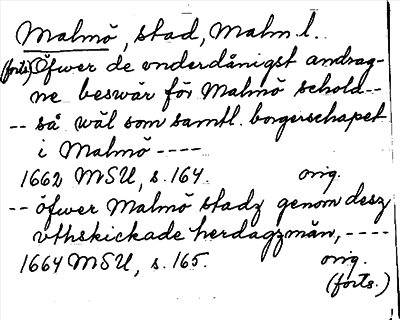 Malmö, stad, Malm. l.
(forts) Öfwer de vnderdånigst andrag-
ne beswär för Malmö schold--
-- så wäl som samtl. borgerschapet
i Malmö ----
1662 MSU, s. 164. orig.
-- öfwer Malmö stadz genom desz
vthskickade herdagzmän, ----
1664 MSU, s. 165. orig.
(forts.)